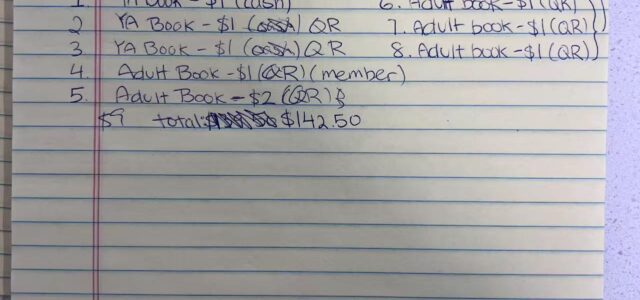 1. YA Book - $1 (cash)
2 YA Book - $1 (cash) QR
3 YA Book - $1 (cash) QR
4. Adult Book - $1 (QR) (member)
5. Adult Book - $2 (QR)
6. Adult book - $1 (QR)
7. Adult book - $1 (QR)
8. Adult book - $1 (QR)
$9 total: $142.50